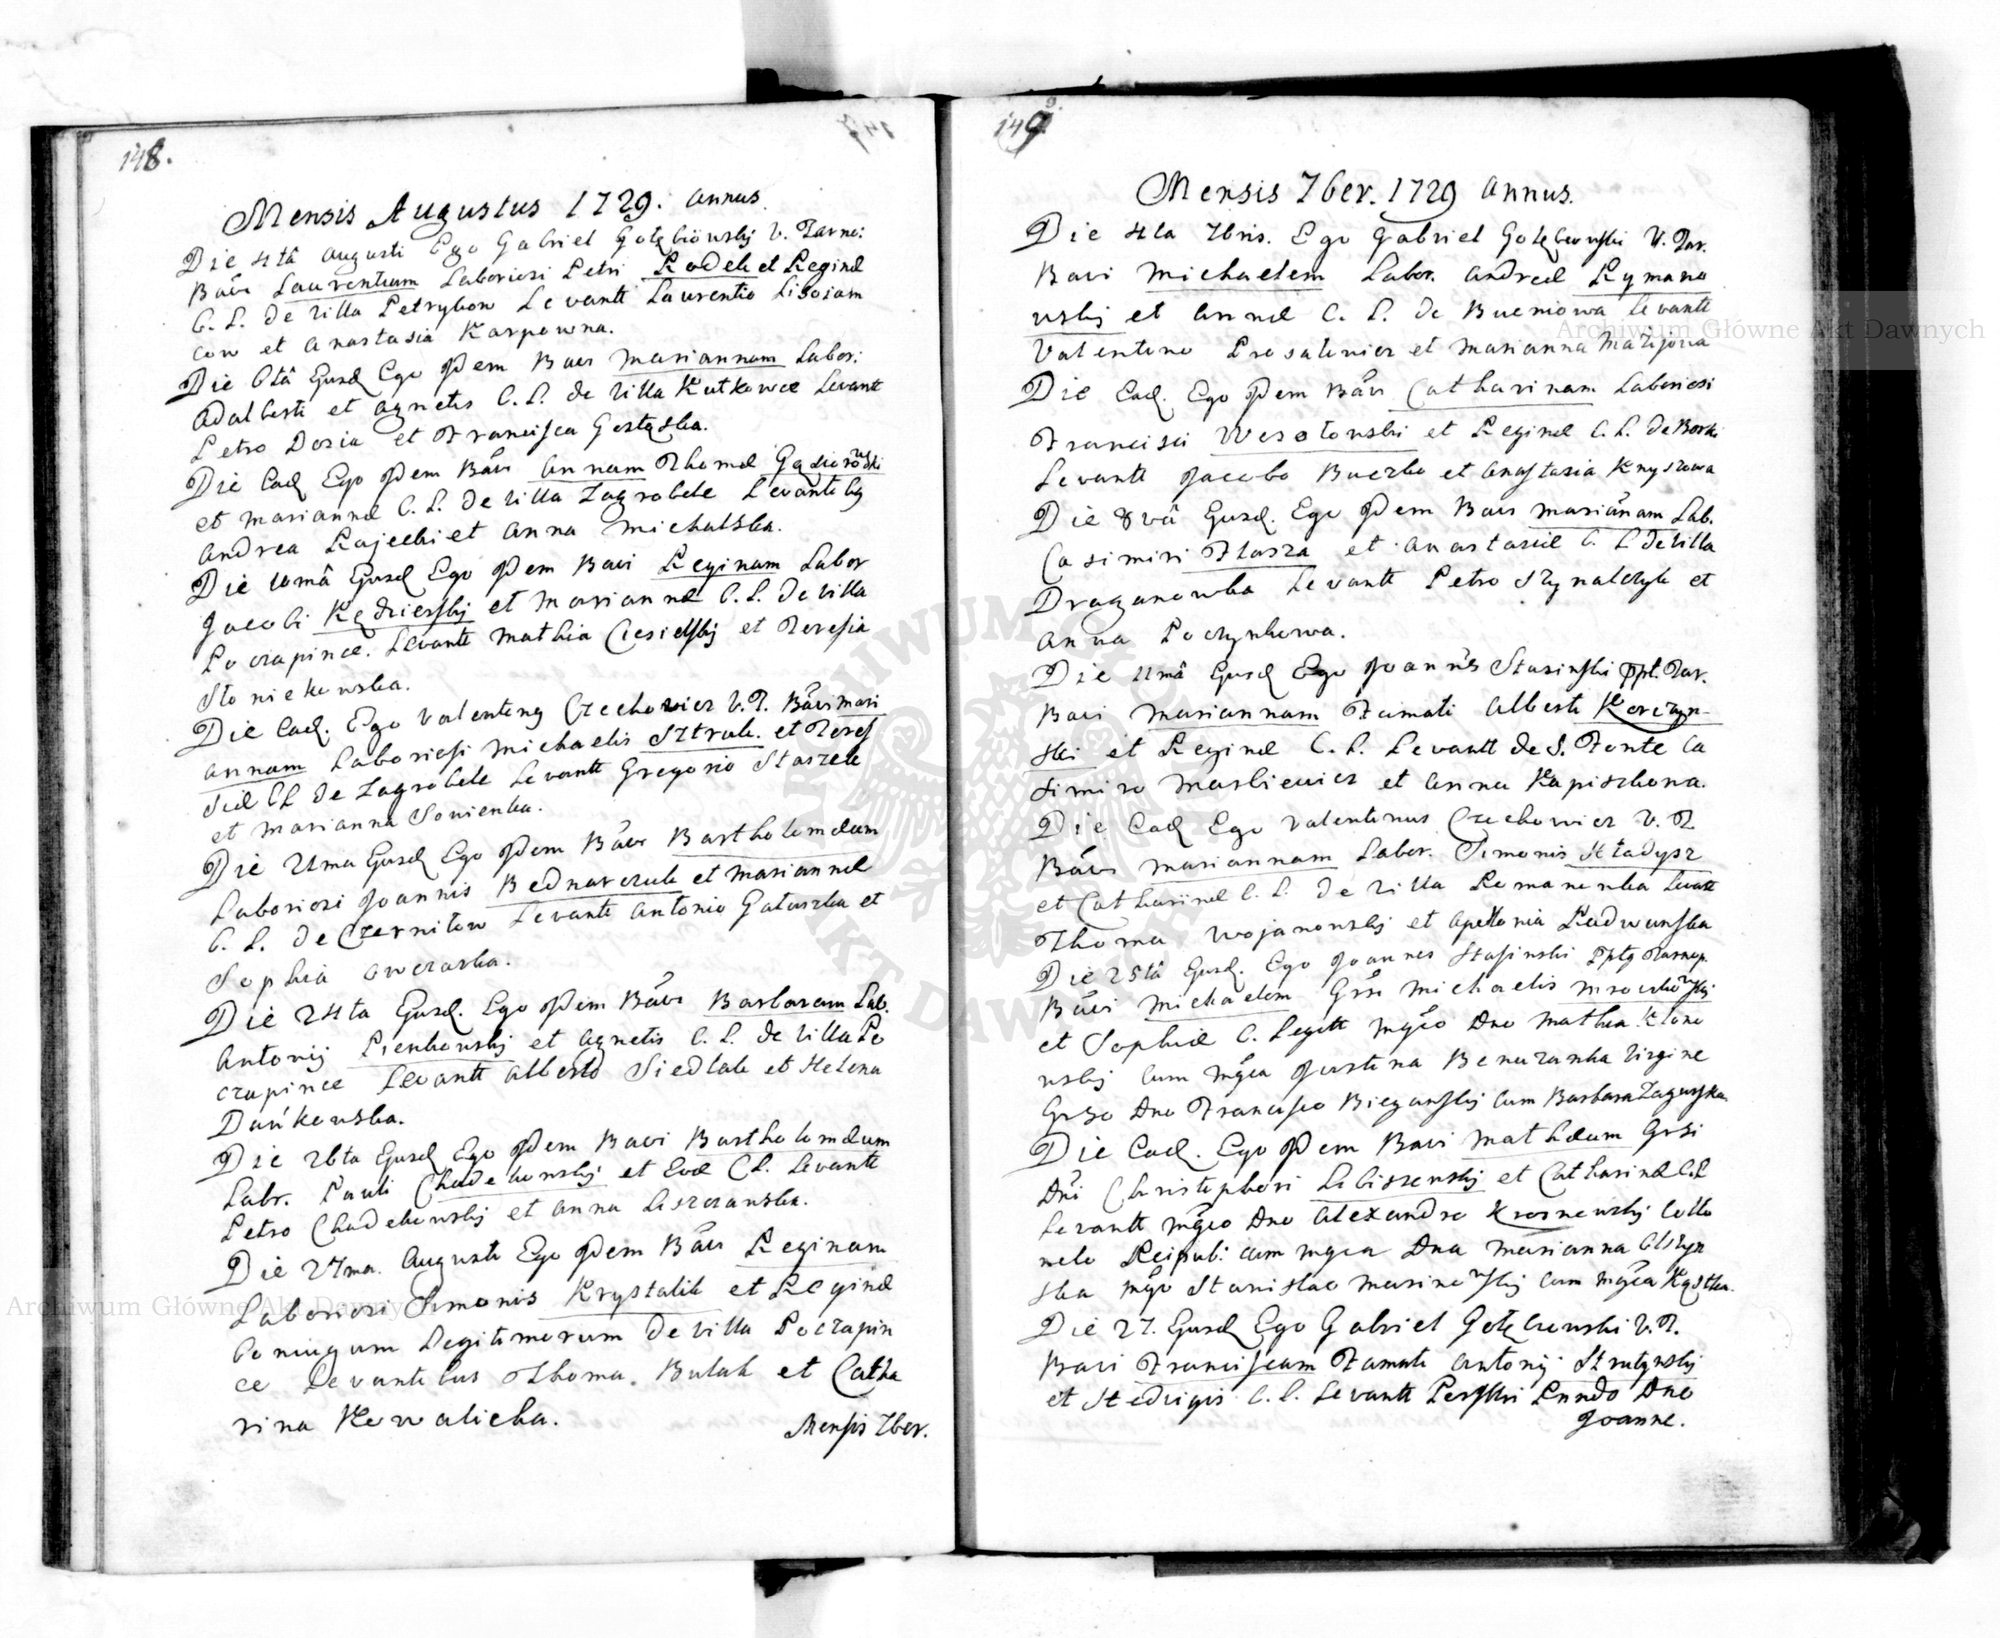 148.
Mensis Augustus 1729. annus.
Die 4tâ Augusti Ego Gabriel Gołębiowskij V. Tarno:
Bavi Laurentium Laboriosi Petri Rudek et Reginæ
C. L. de villa Petrykow Levantt Laurentio Lisoiam
cow et Anastasia Karpowna.
Die 6tâ Eusd Ego Idem Bavi Mariannam Labor:
Adalberti et Agnetis C. L. de villa Kutkowce Levantt
Petro Dozia et Francisca Gostęska.
Die Ead Ego Idem Bavi Annam Thomæ Gąsiorowski
et Mariannæ C. L. de villa Zagrobele Levantibg
Andrea Rajecki et Anna Michalska.
Die 10mâ Eusd Ego Idem Bavi Reginam Labor
Jacobi Kędzierskij et Mariannæ C. L. de villa
Poczapince. Levantt Mathia Ciesielskij et Teresia
Słoniekowska.
Die Ead. Ego Valenting Czechowicz V. T. Bavi Mari
annam Laboriosi Michaelis Sztrak. et Teres
siæ C L de Zagrobele Levantt Gregorio Staszek
et Marianna Sowienka.
Die 21ma Eusd Ego Idem Bavi Bartholomæum
Laboriosi Joannis Bednarczuk et Mariannæ
C. L. de Czernilow Levantt Antonio Gałuszka et
Sophia Owczarka.
Die 24ta Eusd. Ego Idem Bavi Barbaram Lab.
Antonij Pienkowskij et Agnetis C. L. de villa Po
czapince Levantt Alberto Siedlak et Helena
Dańkowska.
Die 26ta Eusd Ego Idem Bavi Bartholomæum
Labr. Pauli Chudekowskij et Evæ CL. Levantt
Petro Chudekowskij et Anna Liszczanska.
Die 27ma. Augusti Ego Idem Bavi Reginam
Laboriosi Simonis Krystalik et Reginæ
Coniugum Legitimorum de villa Poczapin
ce Levantibus Thoma. Bulak et Catha
rina Kowalicha.
Mensis 7ber.
149
Mensis 7ber. 1729 annus.
Die 4ta 7bris. Ego Gabriel Gołęborski V. Tar.
Bavi Michaelem Labor. Andreæ Rymano
wskij et Annæ C. L. de Bucniowa Levantt
Valentino Prosatowicz et Marianna Matijowa
Die Ead. Ego Idem Bavi Catharinam Laboriosi
Francisci Wesołowski et Reginæ C. L. de Borki
Levantt Jacobo Buczko et Anastasia Knyszowa
Die 8vâ Eusd. Ego Idem Bavi Mariānam Lab.
Casimiri Flasza et Anastasiæ C. L de villa
Draganowka Levantt Petro Szynalczyk et
Anna Poczynkowa.
Die 11mâ Eusd Ego Joannes Stasinski Ppt. Tar.
Bavi Mariannam Famati Alberti Korczyn-
ski et Reginæ C. L. Levantt de S. Fonte Ca
simiro Markiewicz et Anna Kapiszkowa.
Die Ead Ego Valentinus Czechowicz V. T
Bavi Mariannam Labor. Simonis Hładysz
et Catharinæ C. L. de villa Romanowka Levatt
Thoma Wojanowskij et Apolonia Radwanska
Die 25tâ Eusd. Ego Joannes Stasinski Pptg Tarnop.
Bavi Michaelem Grsi Michaelis Mrowkowskij
et Sophiæ C. Legitt Mgco Dno Mathia Klono
wskij cum Mgca Justina Benuzanka Virgine
Grso Dno Francisco Biezanskij cum Barbara Zagurska
Die Ead. Ego Idem Bavi Mathæum Grsi
Dni Christophori Lubiszewskij et Catharinæ C.L
Levantt Mgco Dno Alexandro Krosnowskij Collo
nelo Reipub: cum Mgca Dna Marianna Olszyn
ska Mgo Stanislao Marinowskij cum Mgca Kąstka.
Die 27. Eusd Ego Gabriel Gołęborski V. T.
Bavi Franciscam Famati Antonij Strutynskij
et Hedvigis C. L. Levantt Perillri Rnndo Dno
Joanne.
Archiwum Główne Akt Dawnych
Archiwum Główne Akt Dawnych